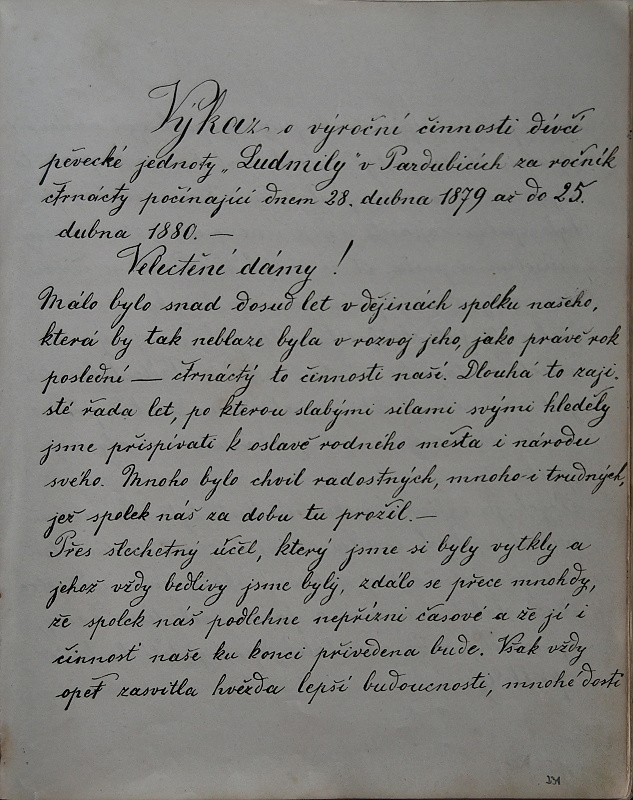 Výkaz o výroční činnosti dívčí
pěvecké jednoty „Ludmily" v Pardubicích za ročník
čtrnáctý počínající dnem 28. dubna 1879 až do 25.
dubna 1880. —
Velectěné dámy!
Málo bylo snad dosud let v dějinách spolku našeho,
která by tak neblaze byla v rozvoj jeho, jako právě rok
poslední — čtrnáctý to činnosti naší. Dlouhá to zaji-
sté řada let, po kterou slabými silami svými hleděly
jsme přispívati k oslavě rodného města i národu
svého. Mnoho bylo chvil radostných, mnoho-i trudných,
jež spolek náš za dobu tu prožil. —
Přes šlechetný účel, který jsme si byly vytkly a
jehož vždy bedlivy jsme byly, zdálo se přece mnohdy,
že spolek náš podlehne nepřízni časové a že jí i
činnosť naše ku konci přivedena bude. Však vždy
opěť zasvitla hvězda lepší budoucnosti, mnohé dosti